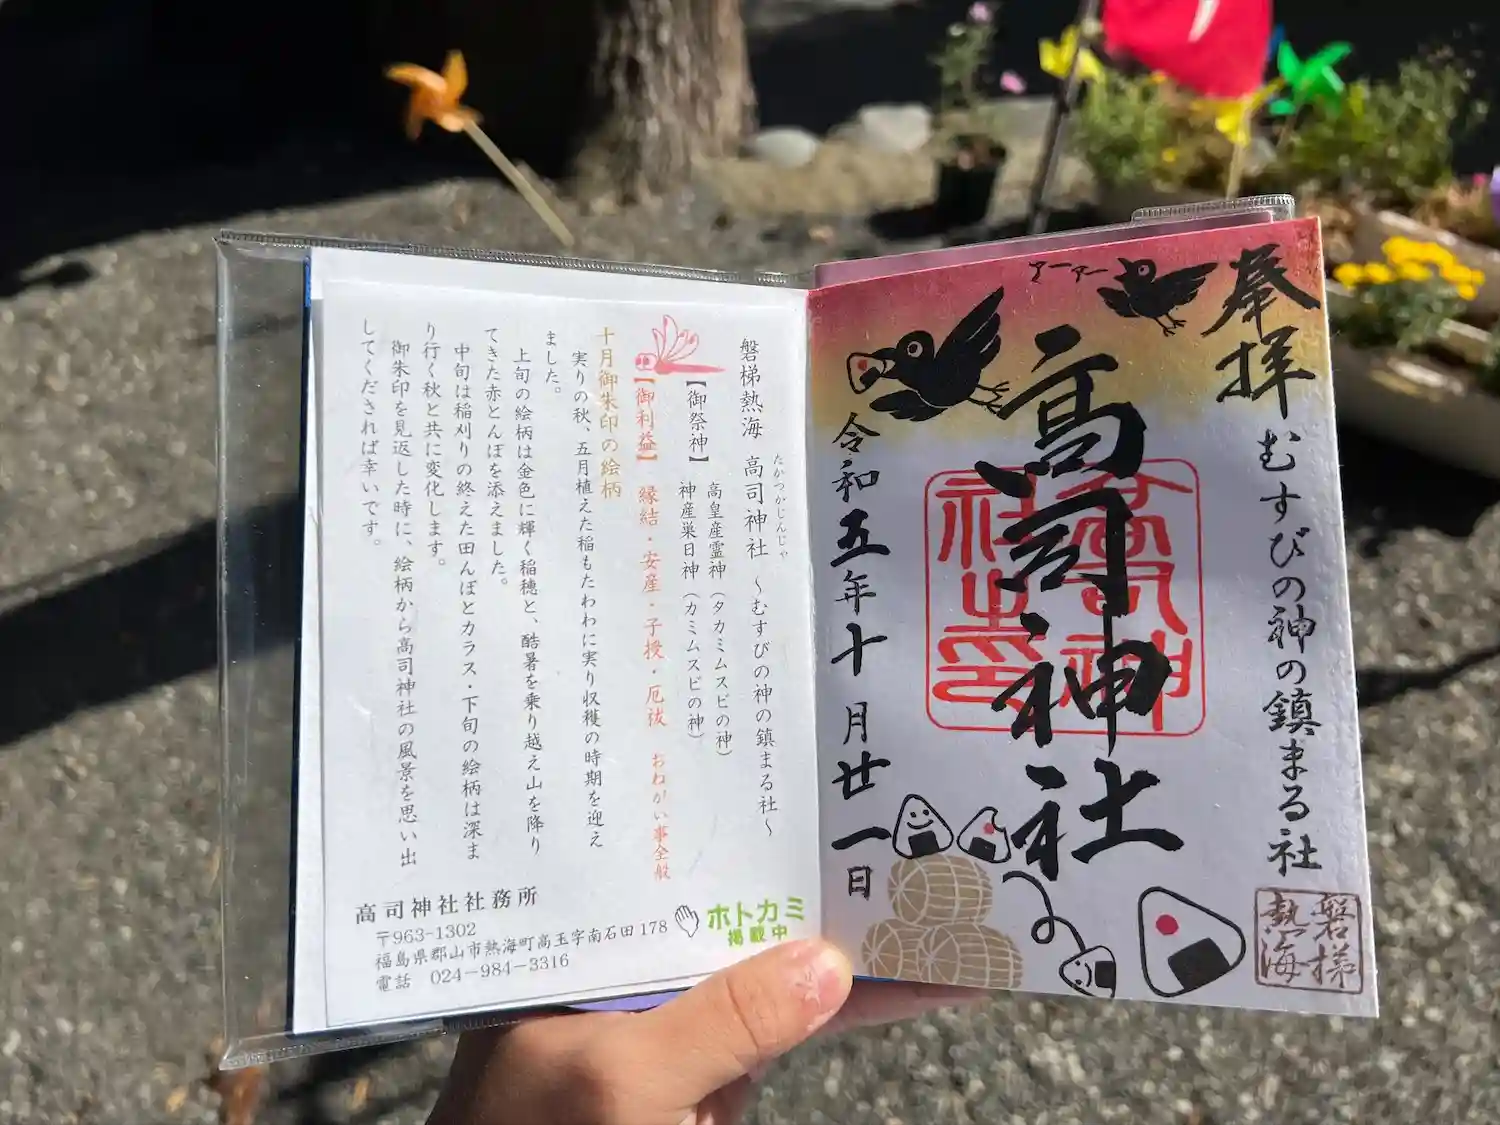 奉拝
むすびの神の鎮まる社
磐梯
熱海
高司神社
高司神
社之印
アーアー
令和五年十月廿一日
磐梯熱海 高司神社 ～むすびの神の鎮まる社～
たかつかじんじゃ
【御祭神】 高皇産霊神（タカミムスビの神）
神産巣日神（カミムスビの神）
【御利益】 縁結・安産・子授・厄祓 おねがい事全般
十月御朱印の絵柄
実りの秋、五月植えた稲もたわわに実り収穫の時期を迎え
ました。
上旬の絵柄は金色に輝く稲穂と、酷暑を乗り越え山を降り
てきた赤とんぼを添えました。
中旬は稲刈りの終えた田んぼとカラス・下旬の絵柄は深ま
り行く秋と共に変化します。
御朱印を見返した時に、絵柄から高司神社の風景を思い出
してくだされば幸いです。
高司神社社務所
〒963-1302
福島県郡山市熱海町高玉字南石田178
電話 024-984-3316
ホトカミ
掲載中